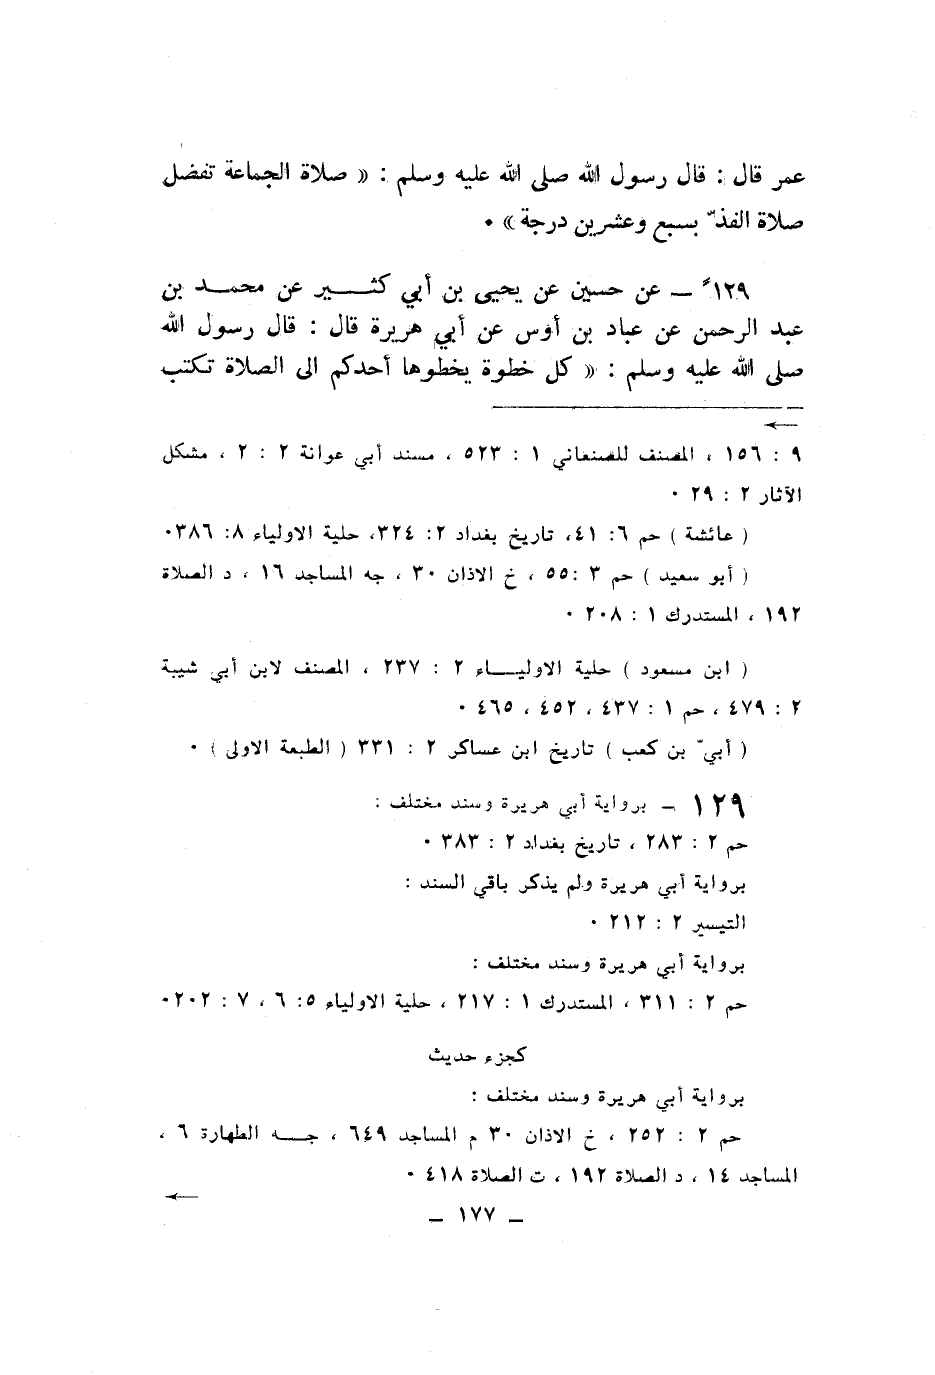 عمر قال : قال رسول الله صلى الله عليه وسلم : « صلاة الجماعة تفضل
صلاة الفذّ بسبع وعشرين درجة » ٠
١٢٩ – عن حسين عن يحيى بن أبي كثير عن محمد بن
عبد الرحمن عن عباد بن أوس عن أبي هريرة قال : قال رسول الله
صلى الله عليه وسلم : « كل خطوة يخطوها أحدكم الى الصلاة تكتب
←
٩ : ١٥٦ ، المصنف للصنعاني ١ : ٥٢٣ ، مسند أبي عوانة ٢ : ٢ ، مشكل
الآثار ٢ : ٢٩ ٠
( عائشة ) حم ٦: ٤١، تاريخ بغداد ٢: ٣٢٤، حلية الاولياء ٨: ٣٨٦٠
( أبو سعيد ) حم ٣ :٥٥ ، خ الاذان ٣٠ ، جه المساجد ١٦ ، د الصلاة
١٩٢ ، المستدرك ١ : ٢٠٨ ٠
( ابن مسعود ) حلية الاولياء ٢ : ٢٣٧ ، المصنف لابن أبي شيبة
٢ : ٤٧٩ ، حم ١ : ٤٣٧ ، ٤٥٢ ، ٤٦٥ ٠
( أبيّ بن كعب ) تاريخ ابن عساكر ٢ : ٣٣١ ( الطبعة الاولى ) ٠
١٢٩ – برواية أبي هريرة وسند مختلف :
حم ٢ : ٢٨٣ ، تاريخ بغداد ٢ : ٣٨٣ ٠
برواية أبي هريرة ولم يذكر باقي السند :
التيسير ٢ : ٢١٢ ٠
برواية أبي هريرة وسند مختلف :
حم ٢ : ٣١١ ، المستدرك ١ : ٢١٧ ، حلية الاولياء ٥: ٦ ، ٧ : ٢٠٢٠
كجزء حديث
برواية أبي هريرة وسند مختلف :
حم ٢ : ٢٥٢ ، خ الاذان ٣٠ م المساجد ٦٤٩ ، جه الطهارة ٦ ،
المساجد ١٤ ، د الصلاة ١٩٢ ، ت الصلاة ٤١٨ ٠
←
– ١٧٧ –